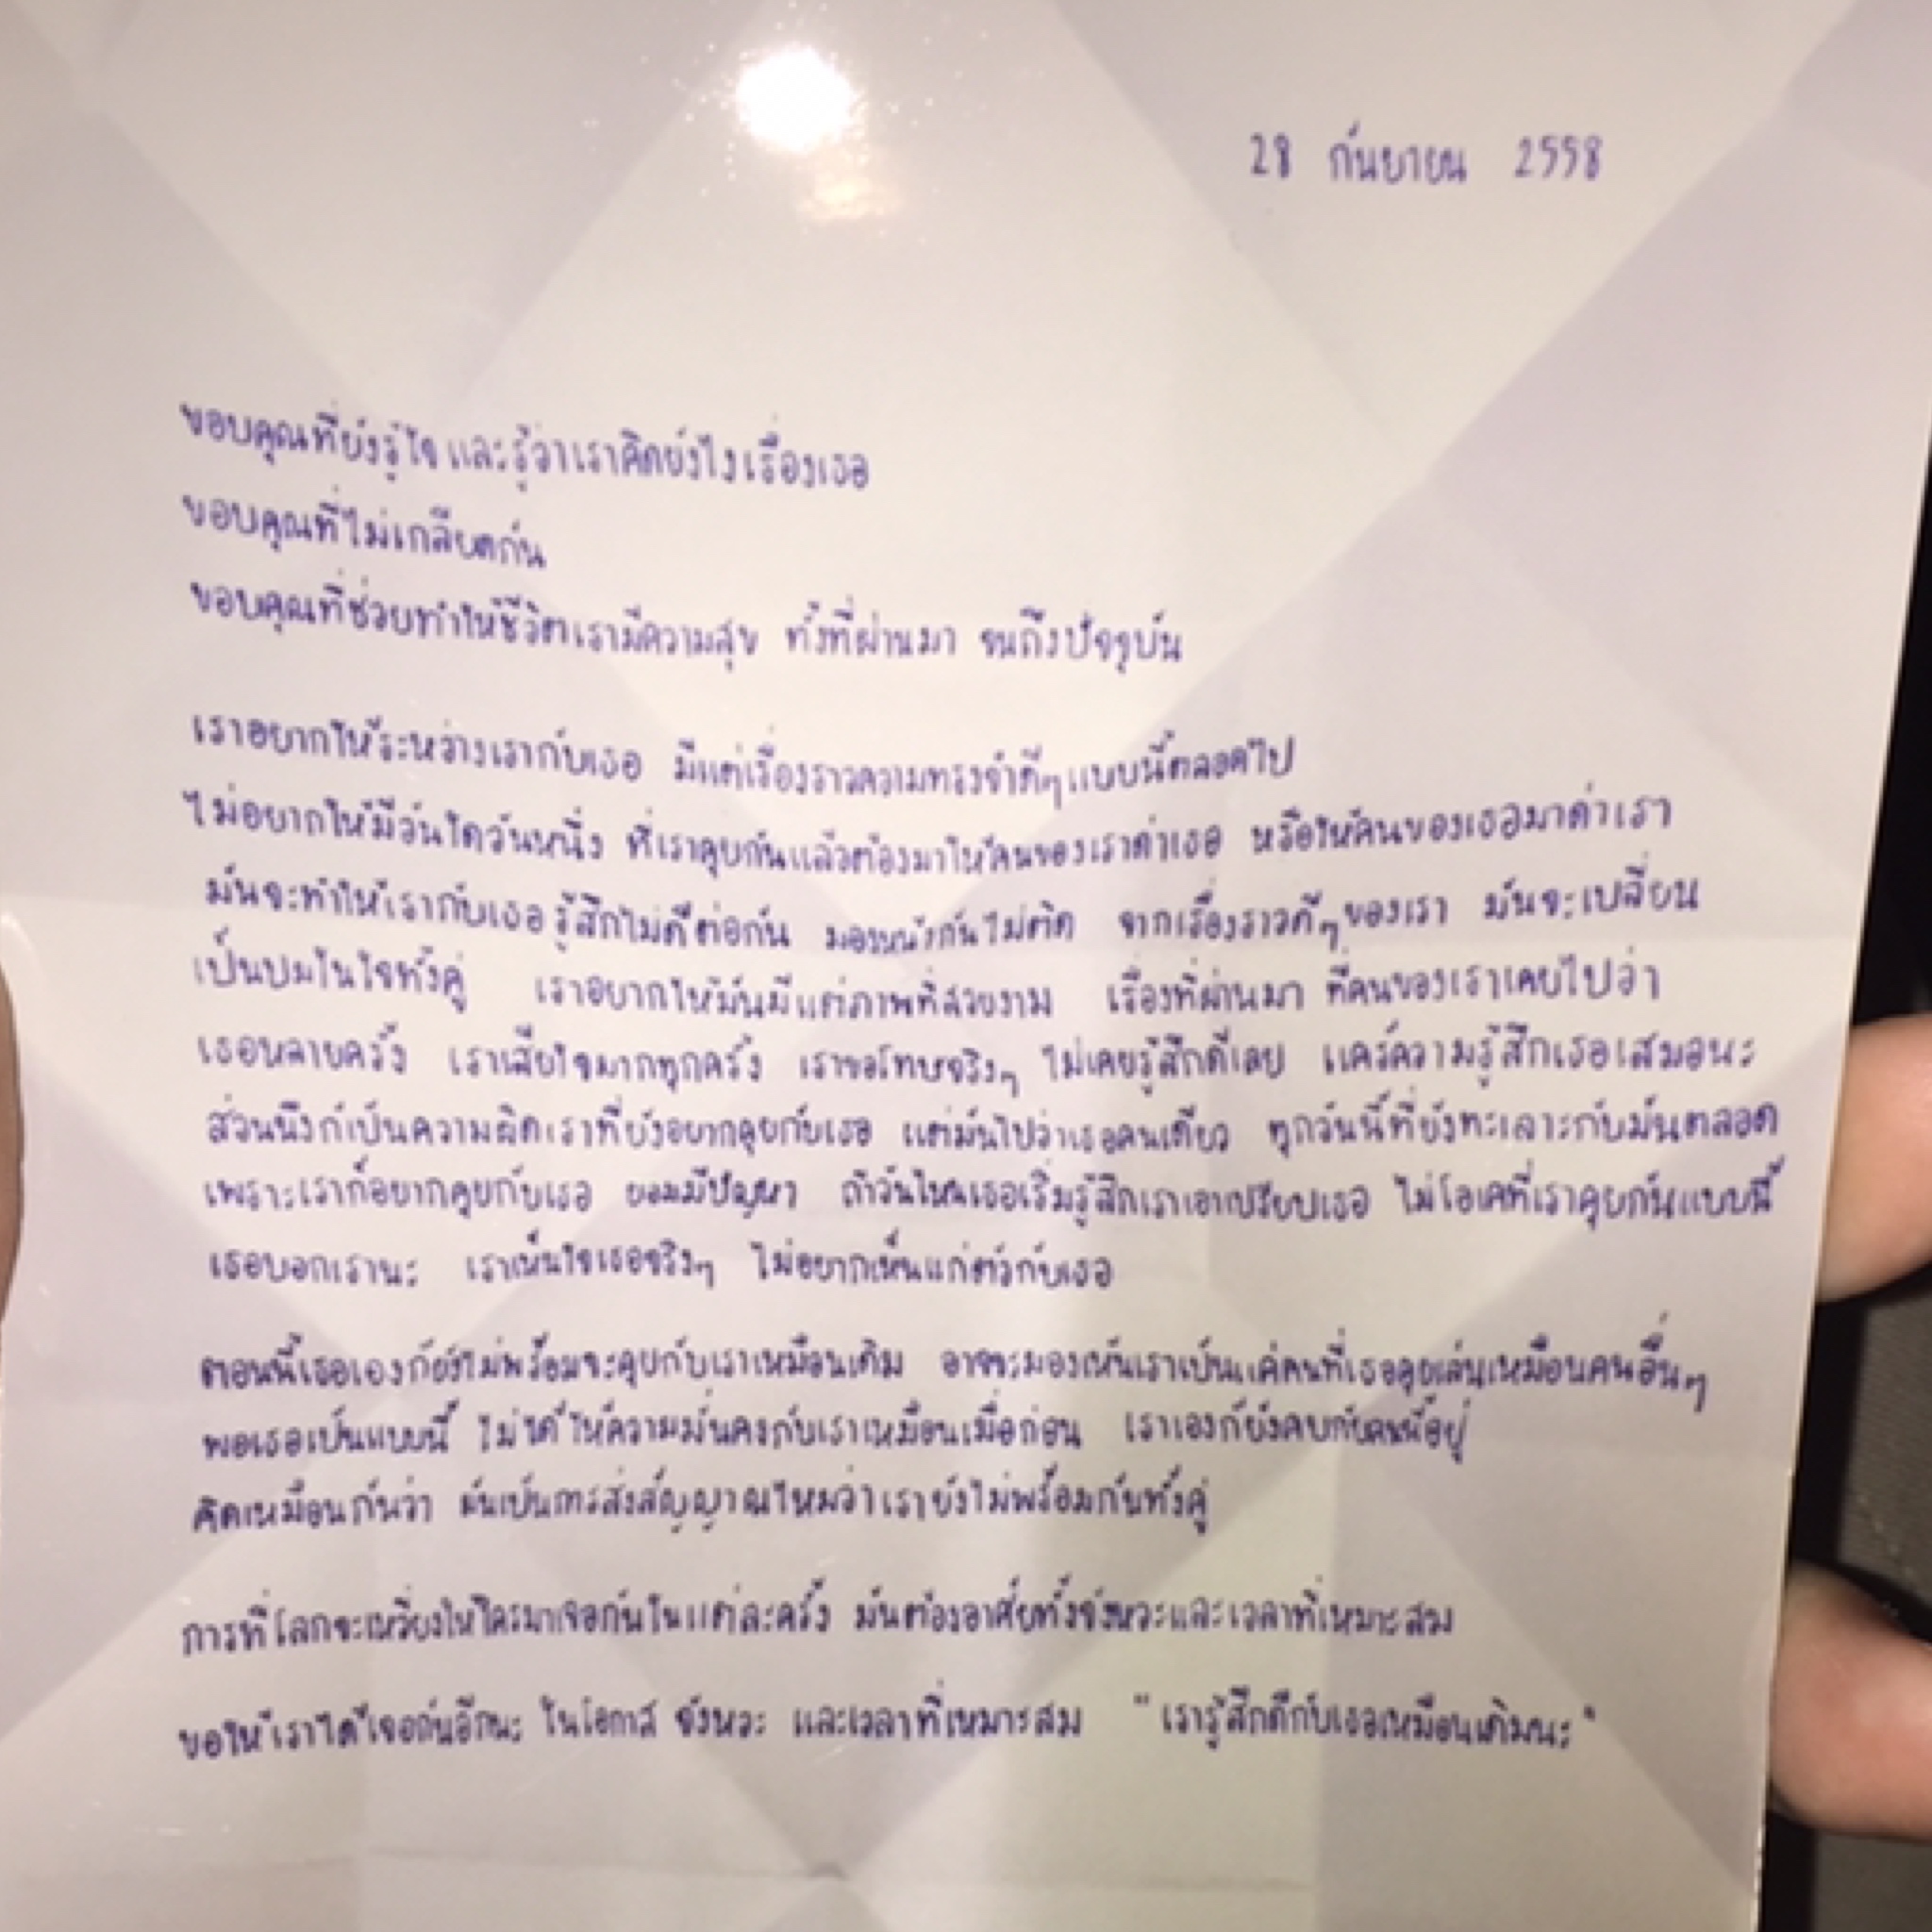 28 กันยายน 2558
ขอบคุณที่ยังรู้ใจ และรู้ว่าเราคิดยังไงเรื่องเธอ
ขอบคุณที่ไม่เกลียดกัน
ขอบคุณที่ช่วยทำให้ชีวิตเรามีความสุข ทั้งที่ผ่านมา จนถึงปัจจุบัน
เราอยากให้ระหว่างเรากับเธอ มีแต่เรื่องราวความทรงจำดีๆแบบนี้ตลอดไป
ไม่อยากให้มีวันใดวันหนึ่ง ที่เราคุยกันแล้วต้องมาให้คนของเราด่าเธอ หรือให้คนของเธอมาด่าเรา
มันจะทำให้เรากับเธอรู้สึกไม่ดีต่อกัน มองหน้ากันไม่ติด จากเรื่องราวดีๆของเรา มันจะเปลี่ยน
เป็นปมในใจทั้งคู่ เราอยากให้มันมีแต่ภาพที่สวยงาม เรื่องที่ผ่านมา ที่คนของเราเคยไปว่า
เธอหลายครั้ง เราเสียใจมากทุกครั้ง เราขอโทษจริงๆ ไม่เคยรู้สึกดีเลย แคร์ความรู้สึกเธอเสมอนะ
ส่วนนึงก็เป็นความผิดเราที่ยังอยากคุยกับเธอ แต่มันไปว่าเธอคนเดียว ทุกวันนี้ที่ยังทะเลาะกับมันตลอด
เพราะเราก็อยากคุยกับเธอ ยอมมีปัญหา ถ้าวันไหนเธอเริ่มรู้สึกเราเอาเปรียบเธอ ไม่โอเคที่เราคุยกันแบบนี้
เธอบอกเรานะ เราเห็นใจเธอจริงๆ ไม่อยากเห็นแก่ตัวกับเธอ
ตอนนี้เธอเองก็ยังไม่พร้อมจะคุยกับเราเหมือนเดิม อาจจะมองเห็นเราเป็นแค่คนที่เธอคุยเล่นเหมือนคนอื่นๆ
พอเธอเป็นแบบนี้ ไม่ได้ให้ความมั่นคงกับเราเหมือนเมื่อก่อน เราเองก็ยังคบกับคนนี้อยู่
คิดเหมือนกันว่า มันเป็นการส่งสัญญาณไหมว่าเรายังไม่พร้อมกันทั้งคู่
การที่โลกจะเหวี่ยงให้ใครมาเจอกันในแต่ละครั้ง มันต้องอาศัยทั้งจังหวะและเวลาที่เหมาะสม
ขอให้เราได้เจอกันอีกนะ ในโอกาส จังหวะ และเวลาที่เหมาะสม "เรารู้สึกดีกับเธอเหมือนเดิมนะ"